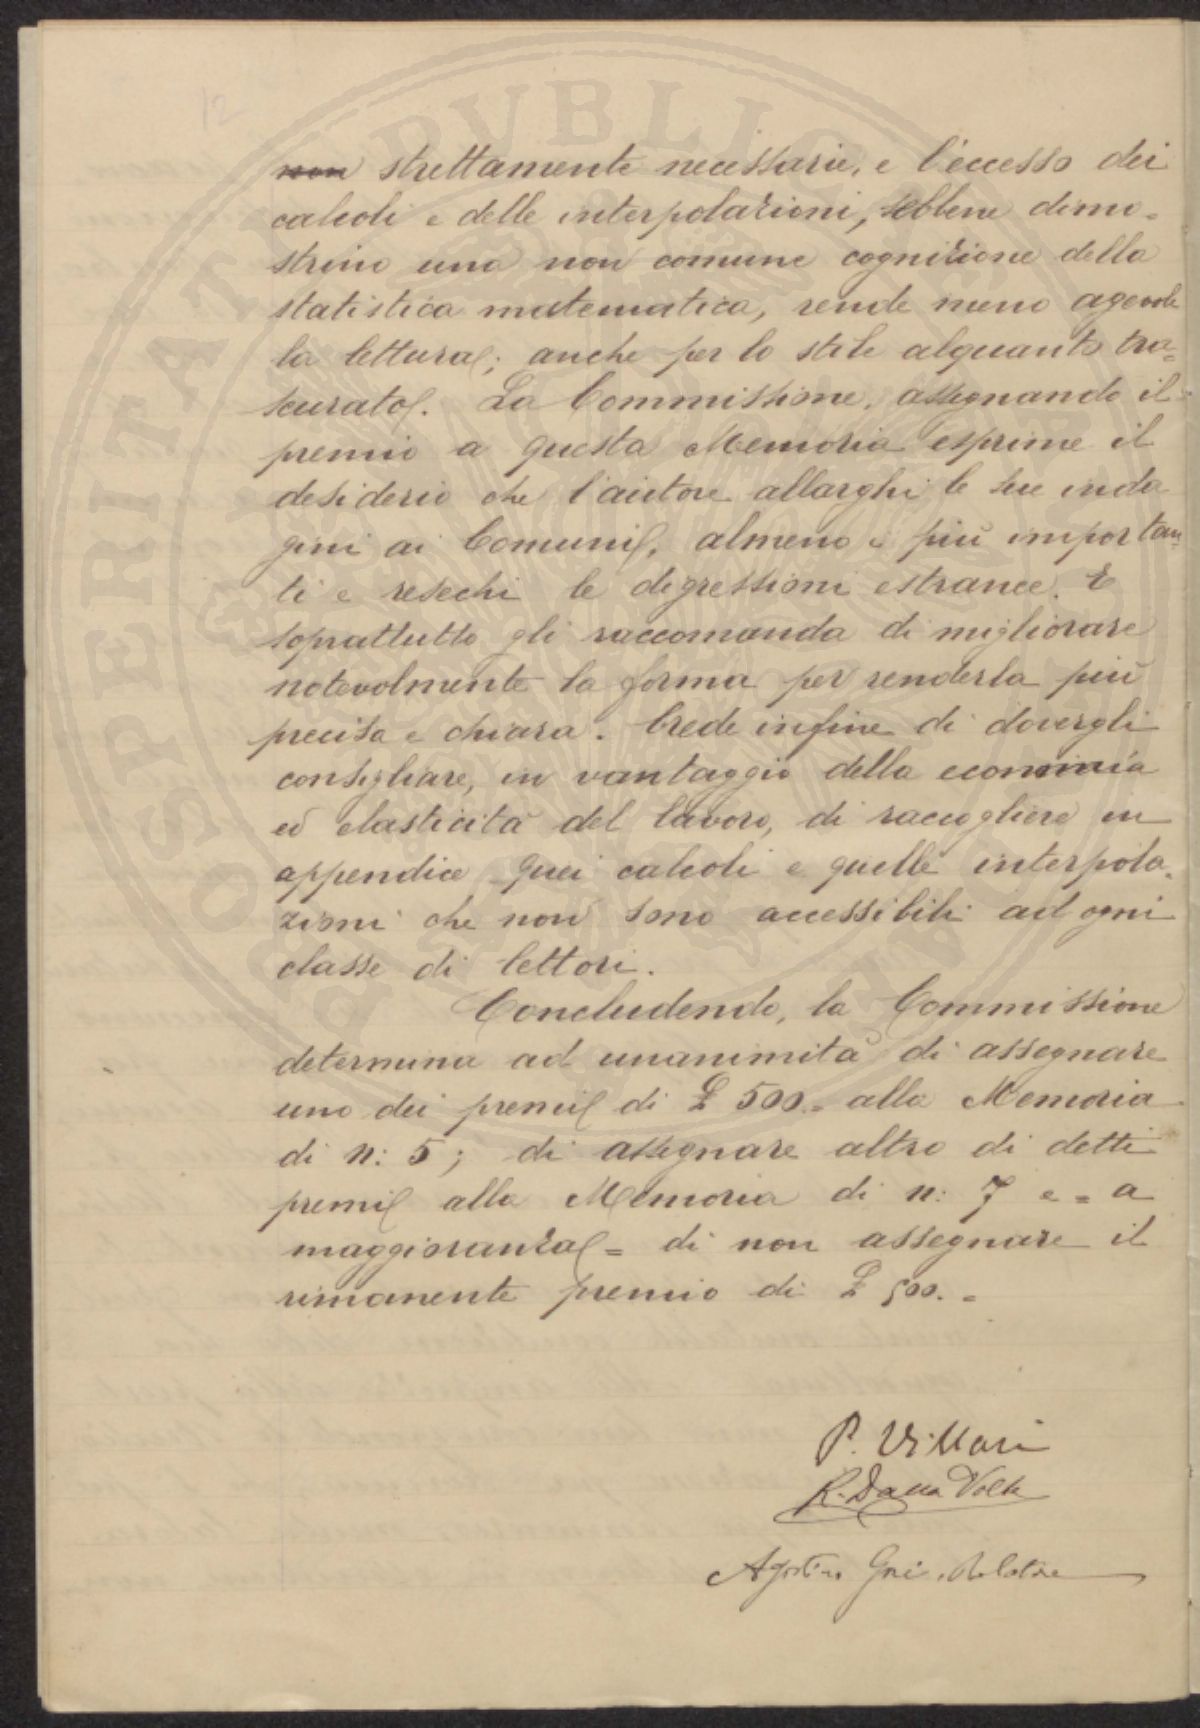 12
non strettamente necessarie, e l'eccesso dei
calcoli e delle interpolazioni, sebbene dimo=
strino una non comune cognizione della
statistica matematica, rende meno agevole
la lettura; anche per lo stile alquanto tra=
scurato. La Commissione, assegnando il
premio a questa Memoria esprime il
desiderio che l'autore allarghi le sue inda
gini ai Comuni, almeno i più importan=
ti e resechi le digressioni estranee. E
soprattutto gli raccomanda di migliorare
notevolmente la forma per renderla più
precisa e chiara. Crede infine di dovergli
consigliare, in vantaggio della economia
ed elasticità del lavoro, di raccogliere in
appendice quei calcoli e quelle interpola=
zioni che non sono accessibili ad ogni
classe di lettori.
Concludendo, la Commissione
determina ad unanimità di assegnare
uno dei premii di £ 500.= alla Memoria
di n: 5; di assegnare altro di detti
premii alla Memoria di n: 7 e = a
maggioranza = di non assegnare il
rimanente premio di £ 500. =
P. Villari
R. Dalla Volta
Agostino Gori, Relatore
PROSPERITATI PVBLICAE